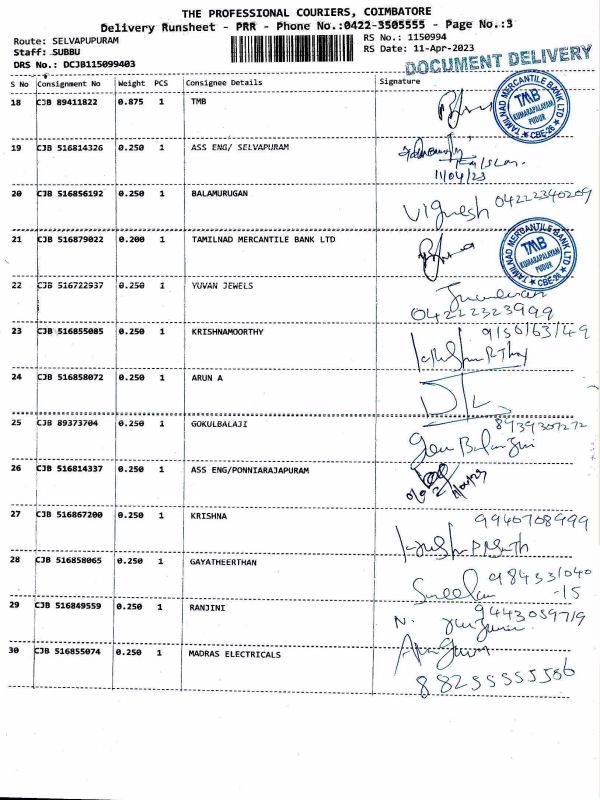 THE PROFESSIONAL COURIERS, COIMBATORE
Delivery Runsheet - PRR - Phone No.:0422-3505555 - Page No.:3
Route: SELVAPUPURAM
RS No.: 1150994
Staff: SUBBU
RS Date: 11-Apr-2023
DRS No.: DCJB115099403
DOCUMENT DELIVERY
S No Consignment No Weight PCS Consignee Details Signature
18 CJB 89411822 0.875 1 TMB
TAMILNAD MERCANTILE BANK LTD
TMB
KUMARAPALAYAM
PUDUR
CBE-26
19 CJB 516814326 0.250 1 ASS ENG/ SELVAPURAM
11/04/23
20 CJB 516856192 0.250 1 BALAMURUGAN
Vignesh 04222340209
21 CJB 516879022 0.200 1 TAMILNAD MERCANTILE BANK LTD
TAMILNAD MERCANTILE BANK LTD
TMB
KUMARAPALAYAM
PUDUR
CBE-26
22 CJB 516722937 0.250 1 YUVAN JEWELS
04222323999
23 CJB 516855085 0.250 1 KRISHNAMOORTHY
24 CJB 516858072 0.250 1 ARUN A
25 CJB 89373704 0.250 1 GOKULBALAJI
8939307272
26 CJB 516814337 0.250 1 ASS ENG/PONNIARAJAPURAM
27 CJB 516867200 0.250 1 KRISHNA
9940708999
28 CJB 516858065 0.250 1 GAYATHEERTHAN
984331040
-15
29 CJB 516849559 0.250 1 RANJINI
9443059719
N.
30 CJB 516855074 0.250 1 MADRAS ELECTRICALS